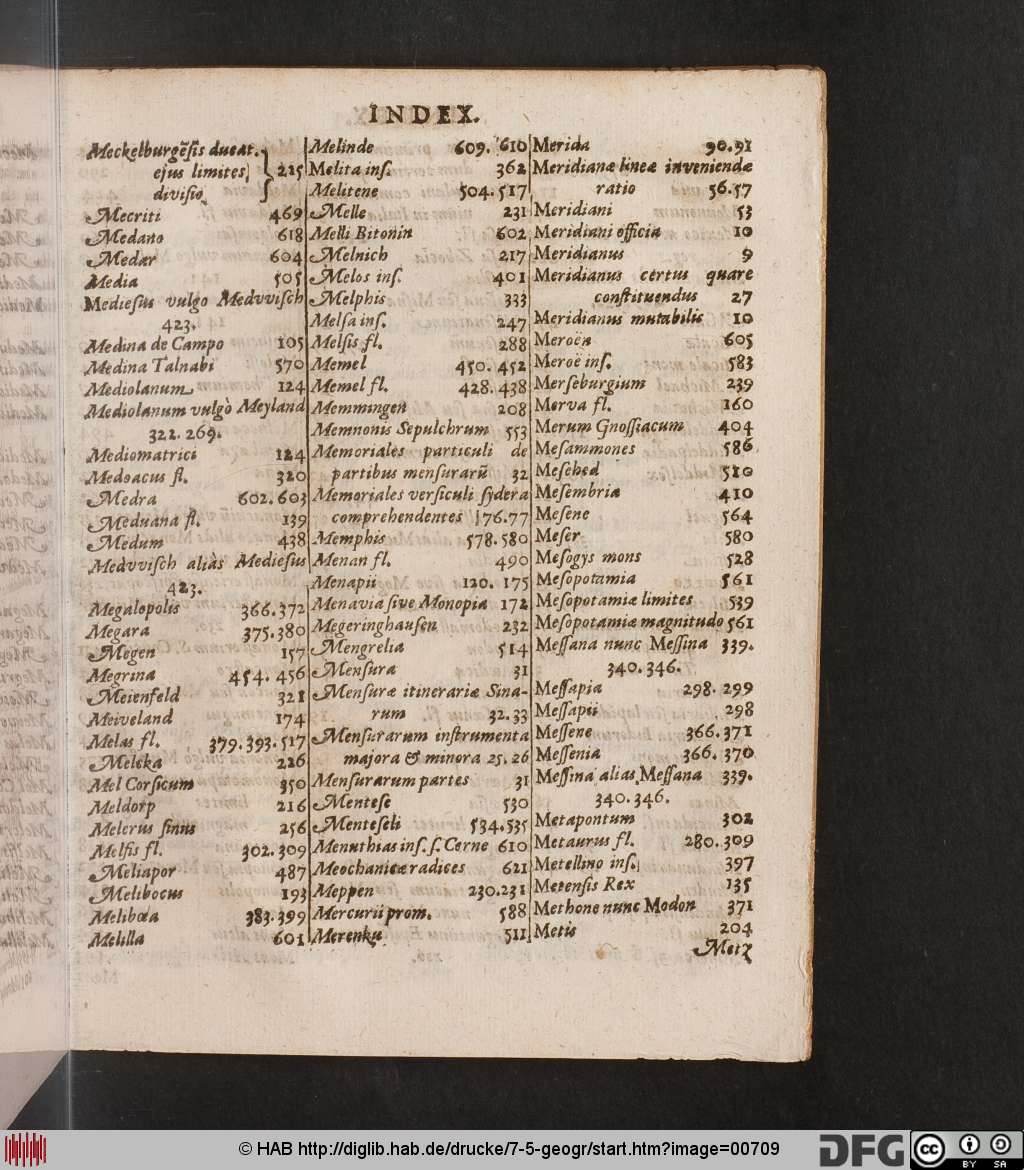 INDEX.
Meckelburgẽſis ducat.
ejus limites 225
diviſio
Mecriti 469
Medano 618
Medar 604
Media 505
Medieſus vulgo Medvviſch
423.
Medina de Campo 105
Medina Talnabi 570
Mediolanum 124
Mediolanum vulgò Meyland
322. 269.
Mediomatrici 124
Medoacus fl. 320
Medra 602.603
Meduana fl. 139
Medum 438
Medvviſch aliàs Medieſus
423.
Megalopolis 366.372
Megara 375.380
Megen 157
Megrina 454. 456
Meienfeld 321
Meiveland 174
Melas fl. 379.393.517
Meleka 226
Mel Corſicum 350
Meldorp 216
Melerus ſinus 256
Melfis fl. 302.309
Meliapor 487
Melibocus 193
Melibœa 383.399
Melilla 601
Melinde 609. 610
Melita inſ. 362
Melitene 504.517
Melle 231
Melli Bitonin 602
Melnich 217
Melos inſ. 401
Melphis 333
Melſa inſ. 247
Melſis fl. 288
Memel 450. 452
Memel fl. 428. 438
Memmingen 208
Memnonis Sepulchrum 553
Memoriales particuli de
partibus menſurarũ 32
Memoriales verſiculi ſydera
comprehendentes 76.77
Memphis 578.580
Menan fl. 490
Menapii 120. 175
Menavia ſive Monopia 172
Megeringhauſen 232
Mengrelia 514
Menſura 31
Menſuræ itinerariæ Sina-
rum 32.33
Menſurarum inſtrumenta
majora & minora 25. 26
Menſurarum partes 31
Menteſe 530
Menteſeli 534.535
Menuthias inſ. ſ. Cerne 610
Meochanicæ radices 621
Meppen 230.231
Mercurii prom. 588
Merenku 511
Merida 90.91
Meridianæ lineæ inveniendæ
ratio 56.57
Meridiani 53
Meridiani officia 10
Meridianus 9
Meridianus certus quare
conſtituendus 27
Meridianus mutabilis 10
Meroën 605
Meroë inſ. 583
Merſeburgium 239
Merva fl. 160
Merum Gnoſſiacum 404
Meſammones 586
Meſched 510
Meſembria 410
Meſene 564
Meſer 580
Meſogys mons 528
Meſopotamia 561
Meſopotamiæ limites 539
Meſopotamiæ magnitudo 561
Meſſana nunc Meſſina 339.
340.346.
Meſſapia 298. 299
Meſſapii 298
Meſſene 366.371
Meſſenia 366. 370
Meſſina alias Meſſana 339.
340.346.
Metapontum 302
Metaurus fl. 280.309
Metellino inſ. 397
Metenſis Rex 135
Methone nunc Modon 371
Metis 204
Metz
© HAB http://diglib.hab.de/drucke/7-5-geogr/start.htm?image=00709
DFG
cc
BY SA